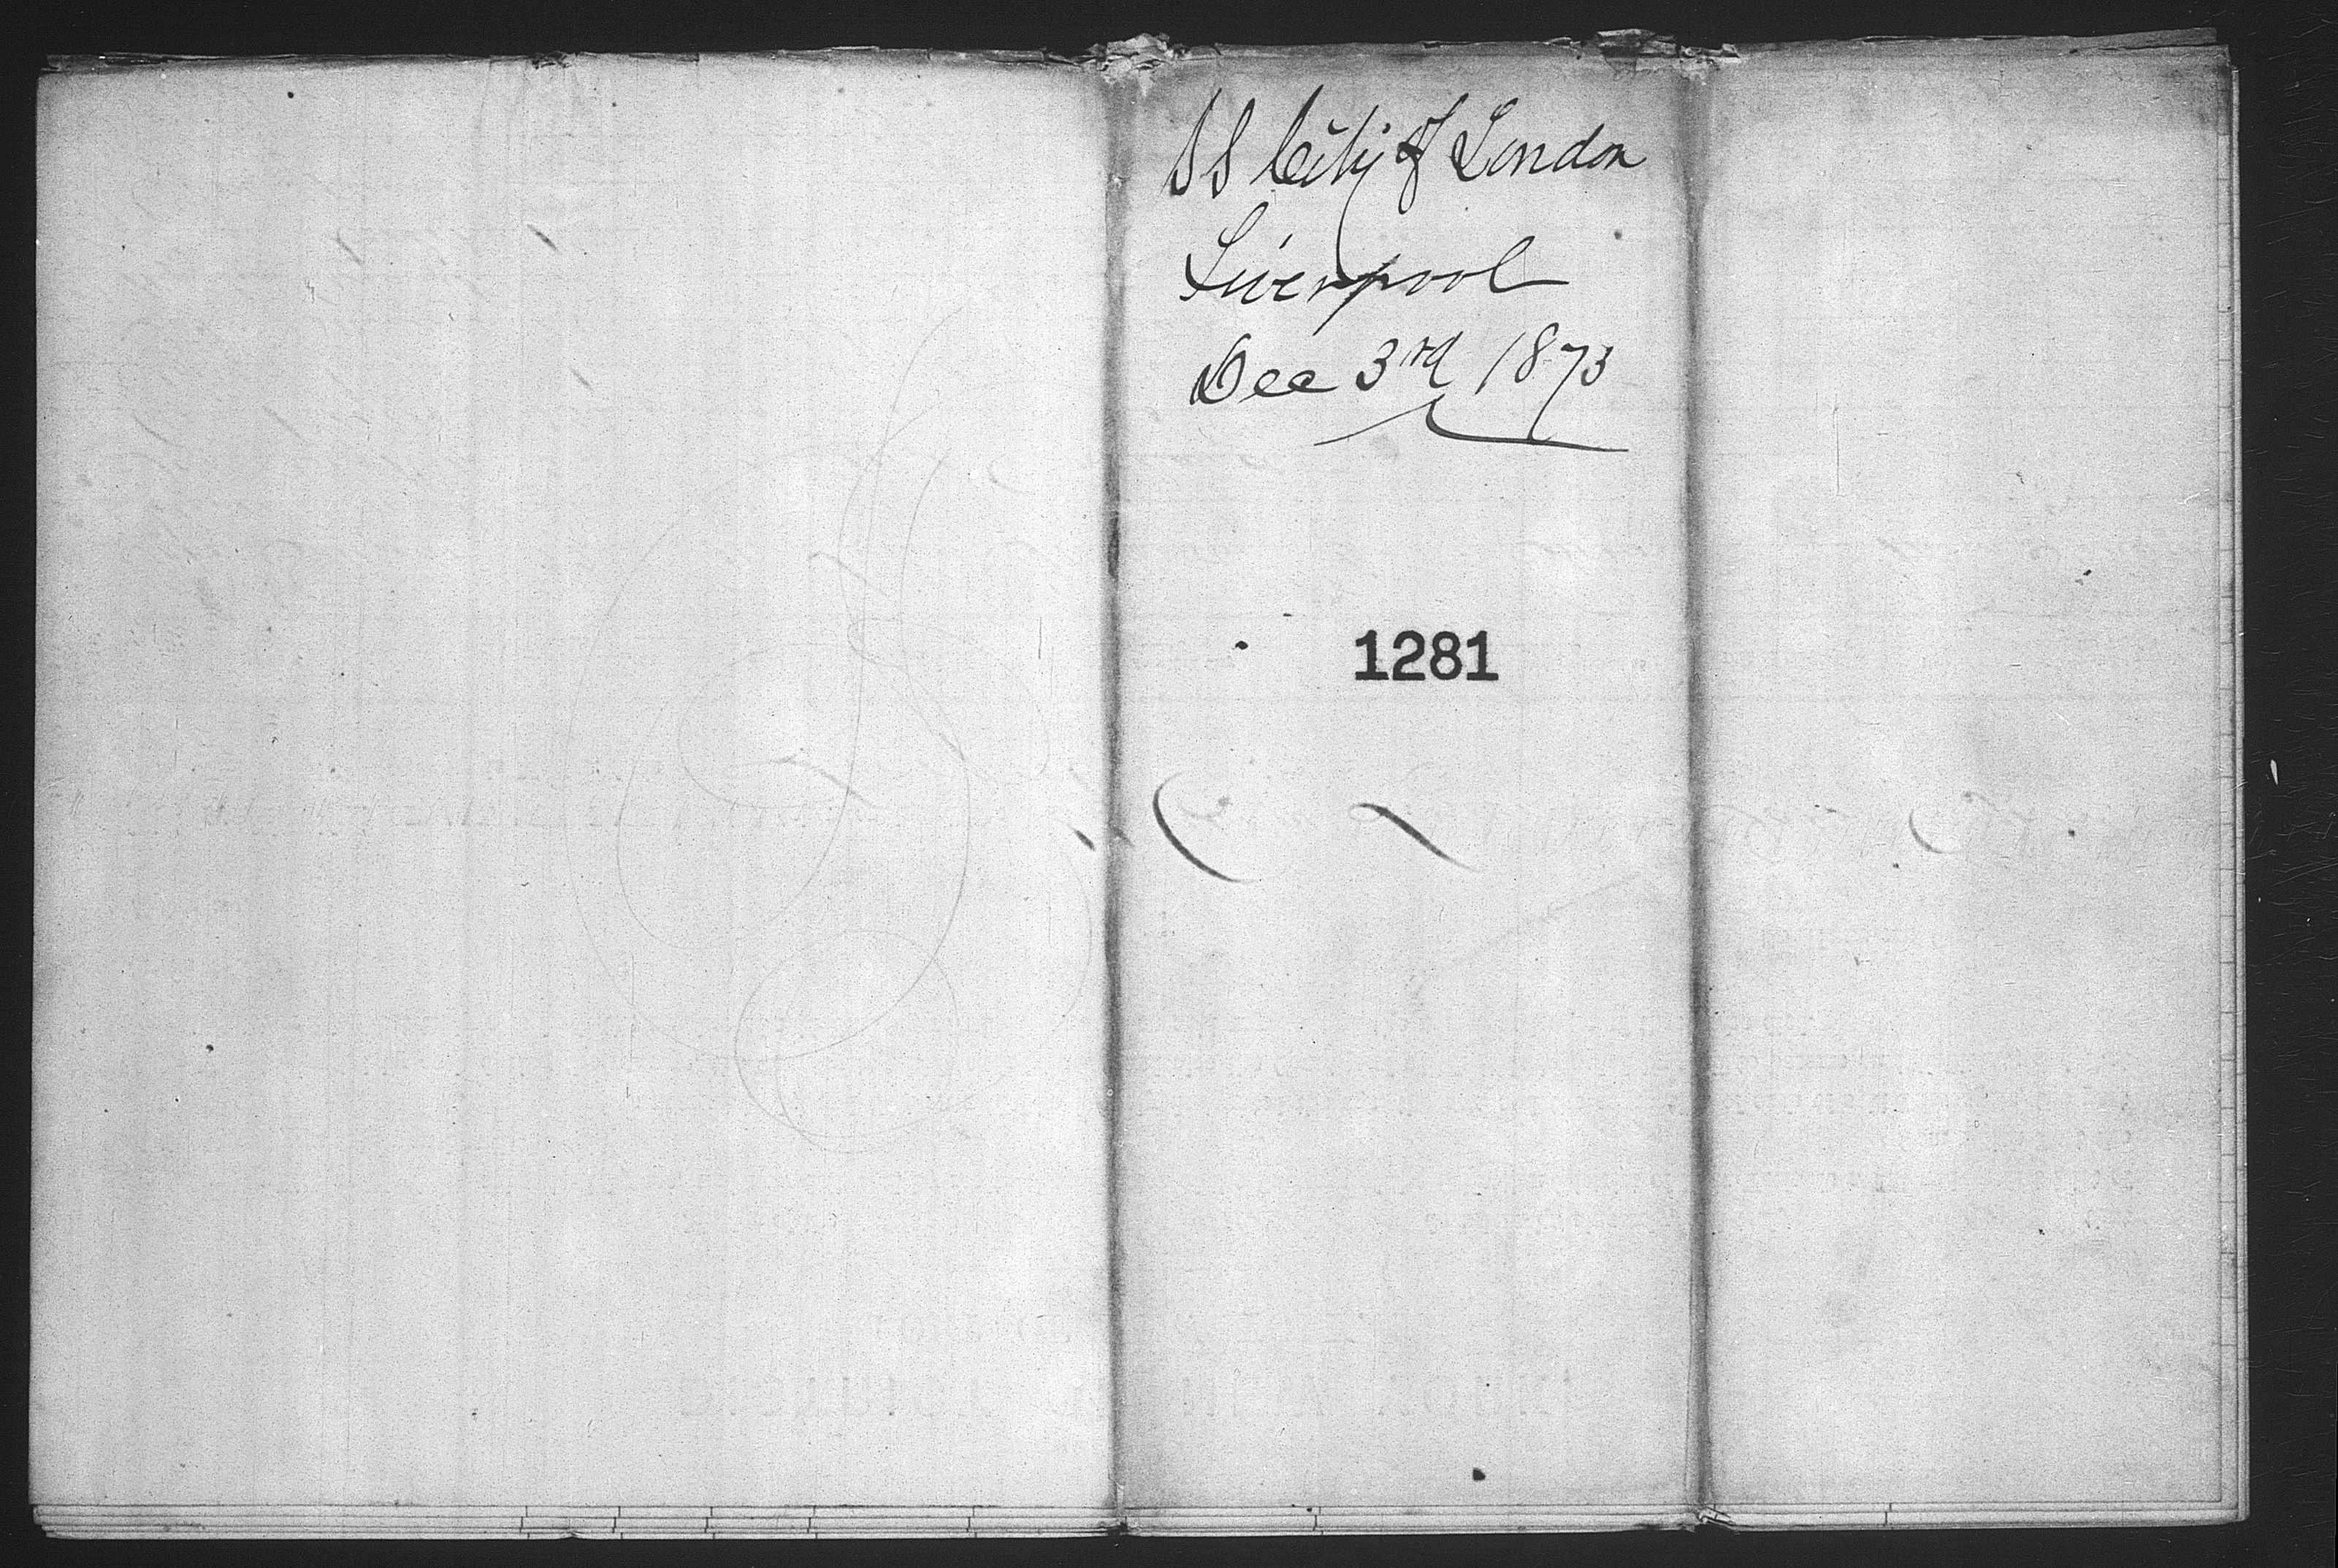 SS City of London
Liverpool
Dec 3rd 1873
1281